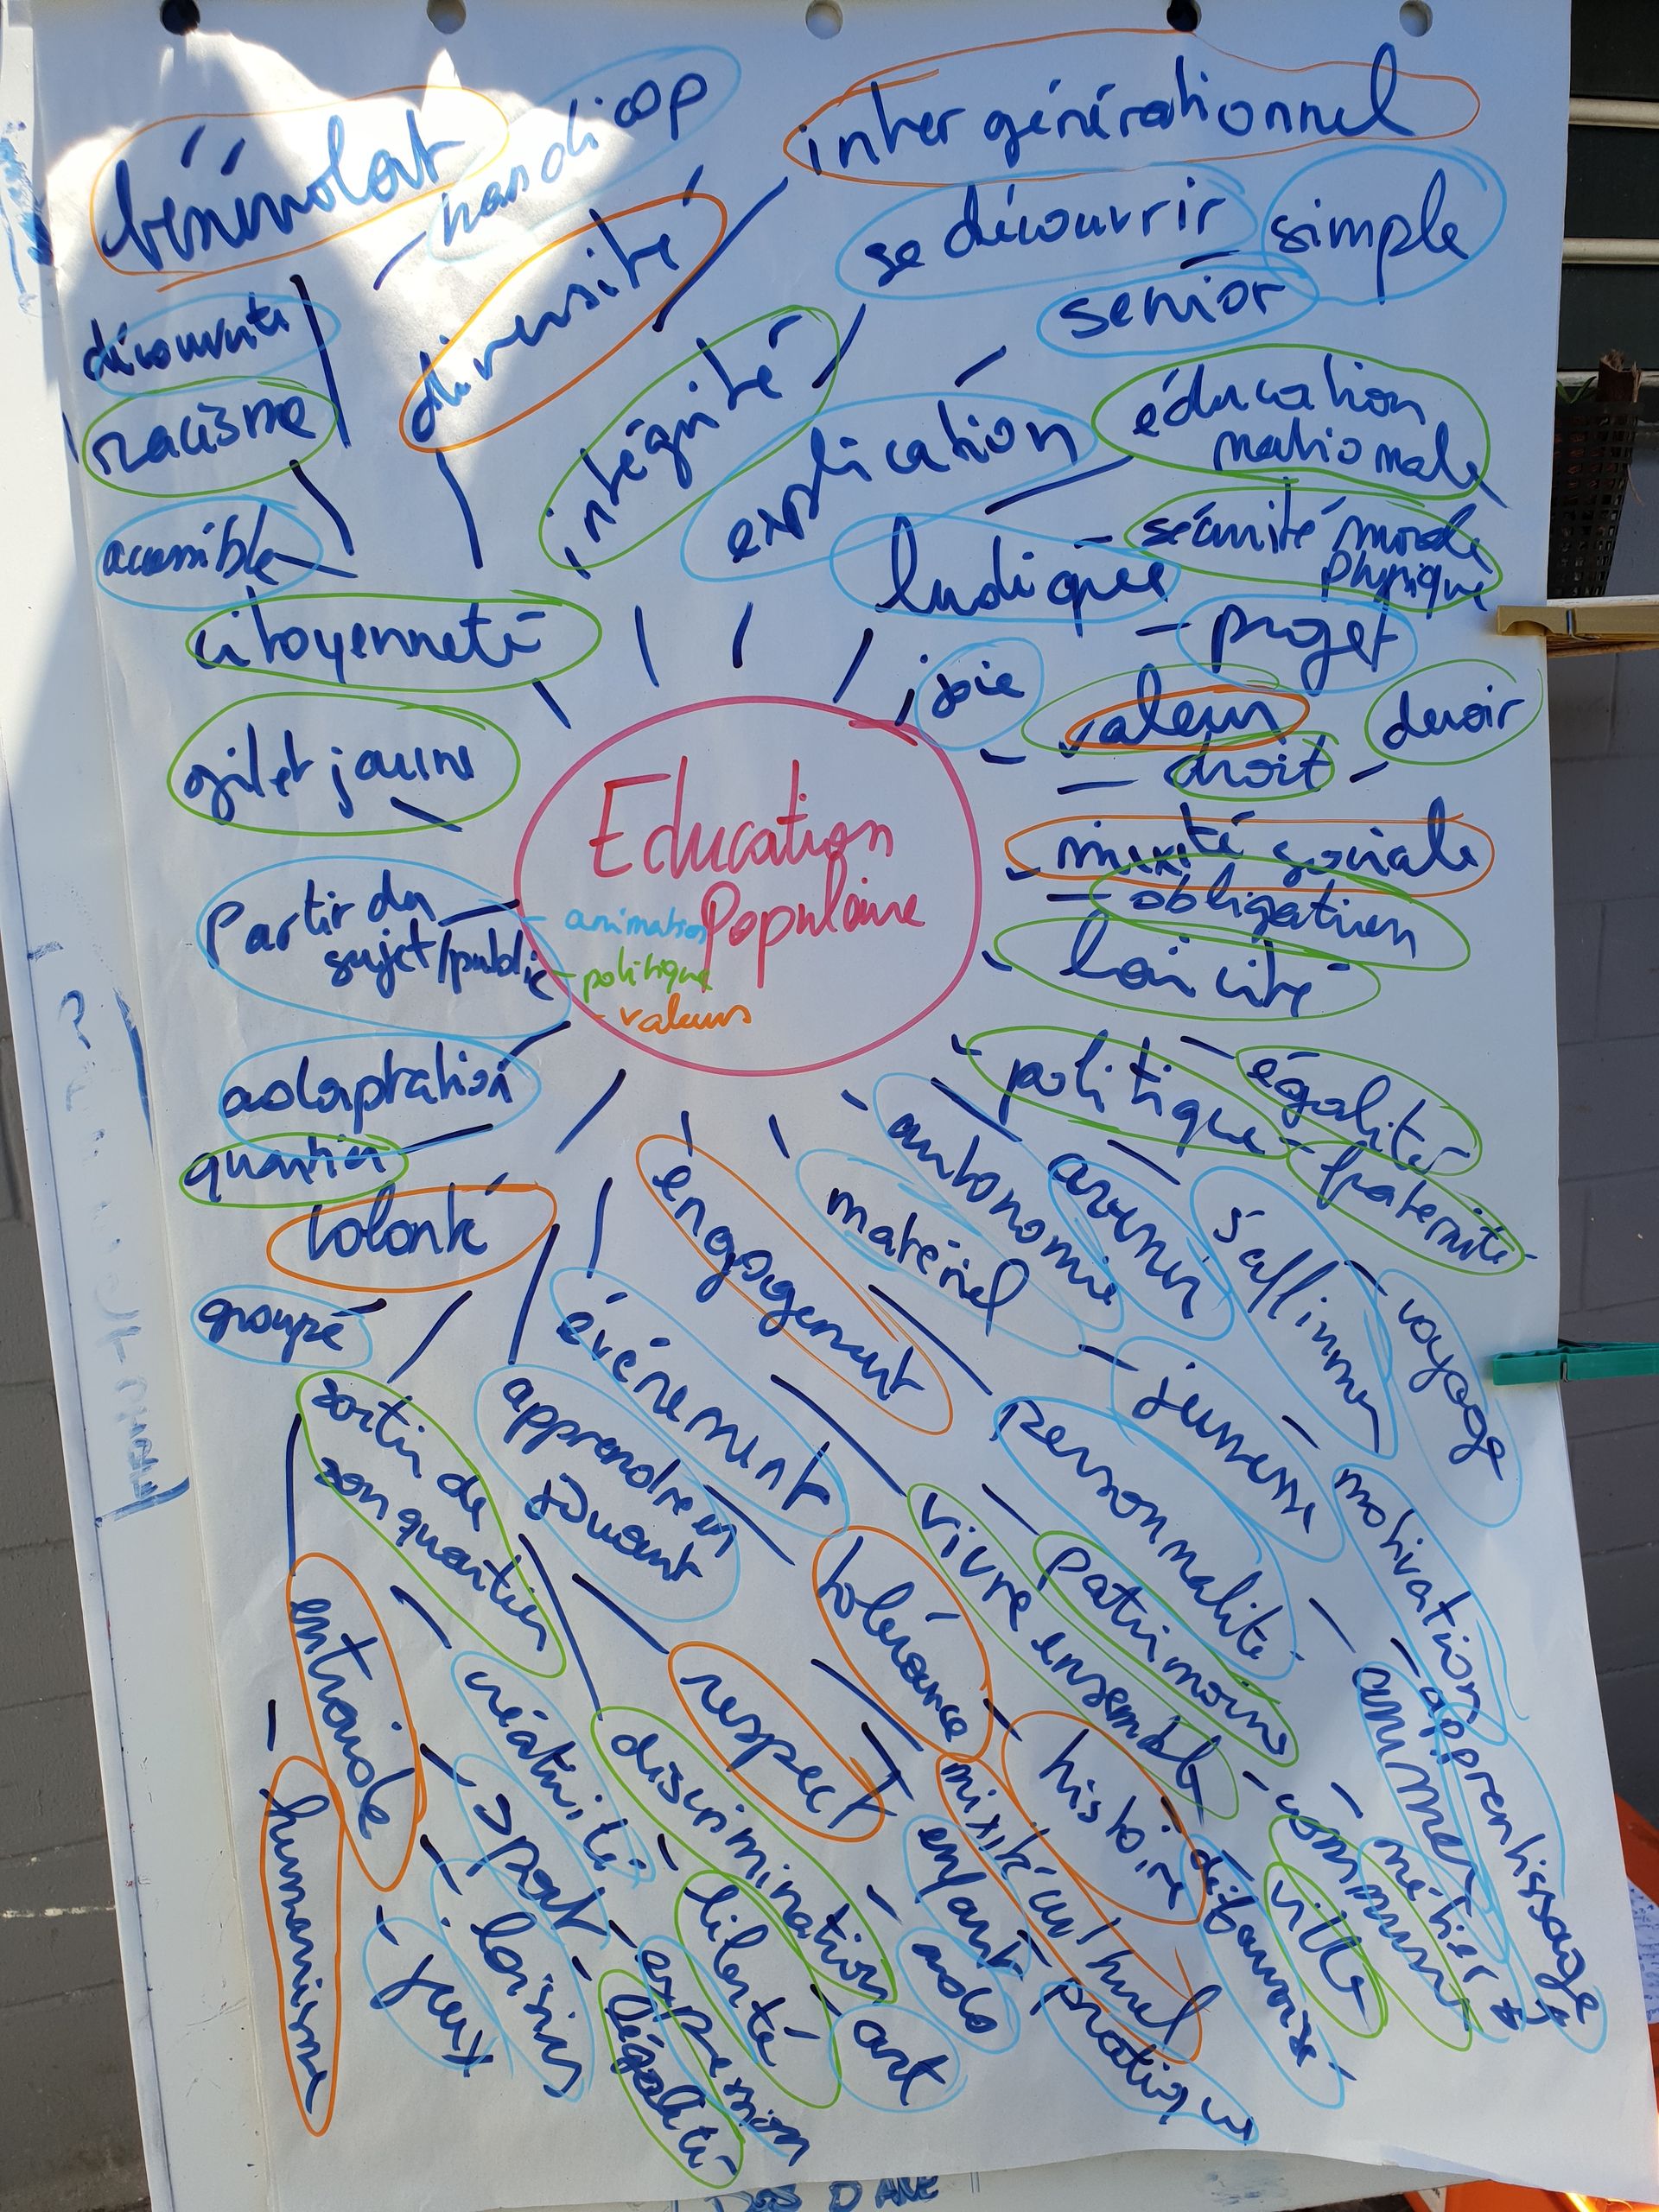 bénévolat
handicap
inter générationnel
diversité
se découvrir
simple
senior
découverte
racisme
intégrité
explication
éducation
nationale
accessible
ludique
sécurité morale
physique
citoyenneté
projet
joie
valeur
devoir
gilet jaune
droit
Education
Populaire
animation
politique
valeurs
mixité sociale
obligation
Partir du
sujet/public
laïcité
adaptation
politique
égalité
fraternité
quartier
volonté
engagement
matériel
autonomie
avenir
s'affirmer
voyage
groupe
événement
jeunesse
sortir de
son quartier
apprendre en
jouant
personnalité
motivation
vivre ensemble
patrimoine
tolérance
entraide
créativité
respect
animer
apprentissage
discrimination
histoire
humanisme
sport
mixité culturel
enfant
commun
métier
ville
liberté
ados
loisirs
jeux
expression
art
pratique
légalité